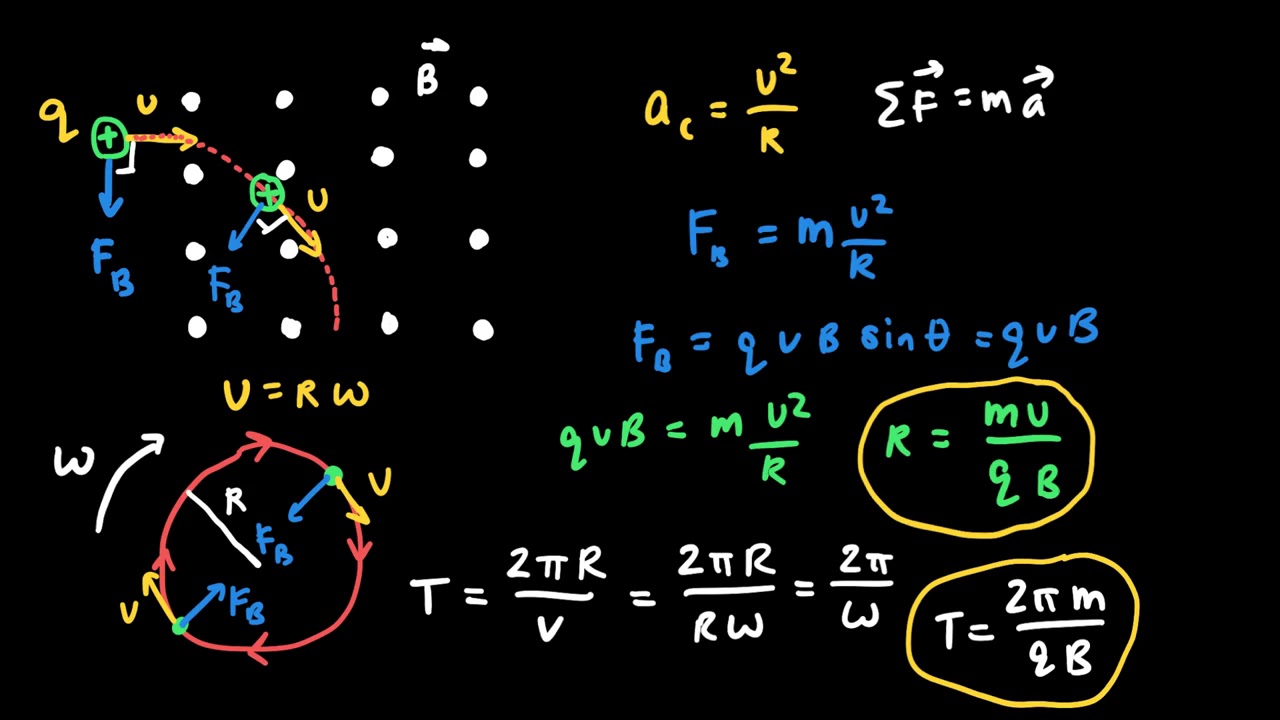 B⃗
q υ
υ
F_B
F_B
a_c = υ²/R
ΣF⃗ = ma⃗
F_B = m υ²/R
F_B = qυB sinθ = qυB
υ = Rω
qυB = m υ²/R
R = mυ/qB
ω
R
υ
F_B
υ
F_B
T = 2πR/υ = 2πR/Rω = 2π/ω
T = 2πm/qB